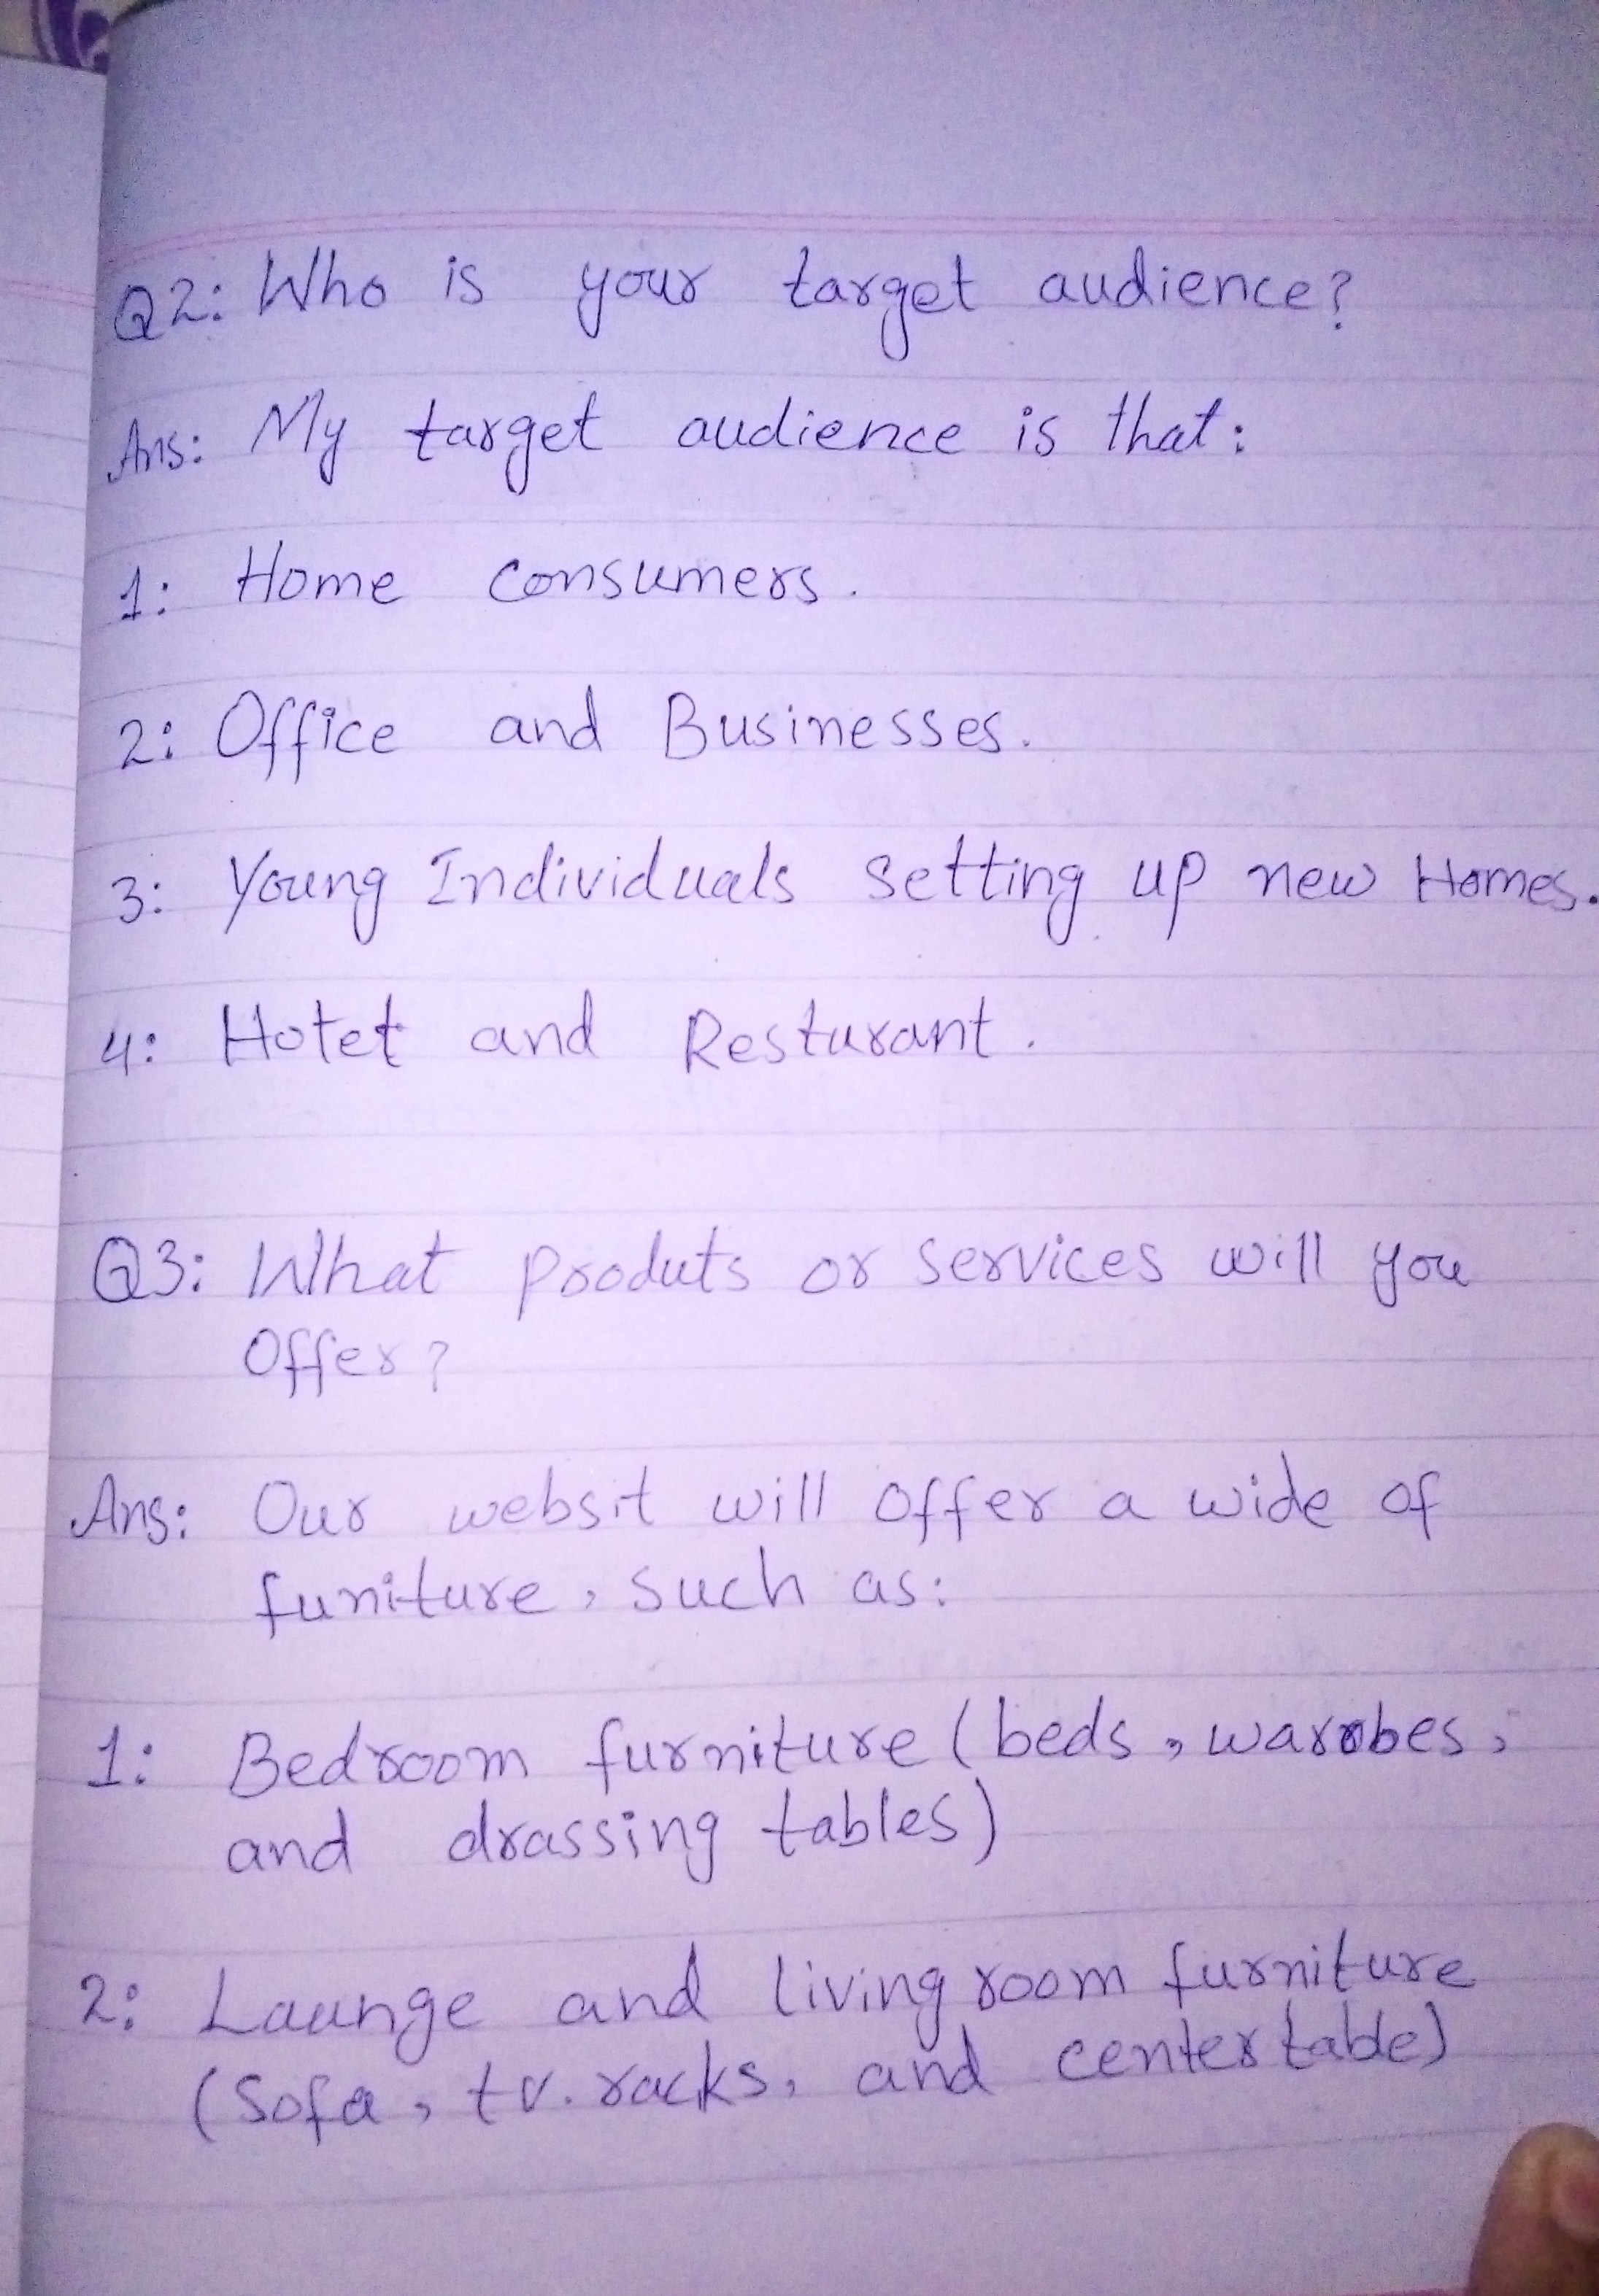 Q2: Who is your target audience?
Ans: My target audience is that:
1: Home Consumers.
2: Office and Businesses.
3: Young Individuals setting up new Homes.
4: Hotet and Resturant.
Q3: What produts or services will you
offer?
Ans: Our websit will offer a wide of
funiture, such as:
1: Bedroom furniture (beds, warobes,
and drassing tables)
2: Launge and living room furniture
(Sofa, tv. racks, and center table)